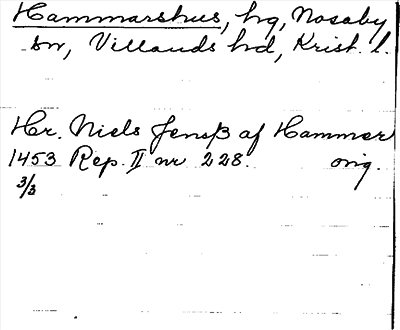 Hammarshus, hg, Nosaby
sn, Villands hd, Krist. l.
Hr. Niels Jenß af Hammer
1453 Rep. II nr 228. orig.
3/3